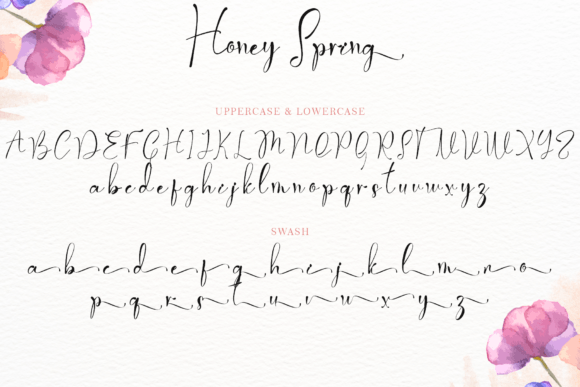 Honey Spring
UPPERCASE & LOWERCASE
A B C D E F G H I J K L M N O P Q R S T U V W X Y Z
a b c d e f g h i j k l m n o p q r s t u v w x y z
SWASH
a b c d e f g h i j k l m n o
p q r s t u v w x y z